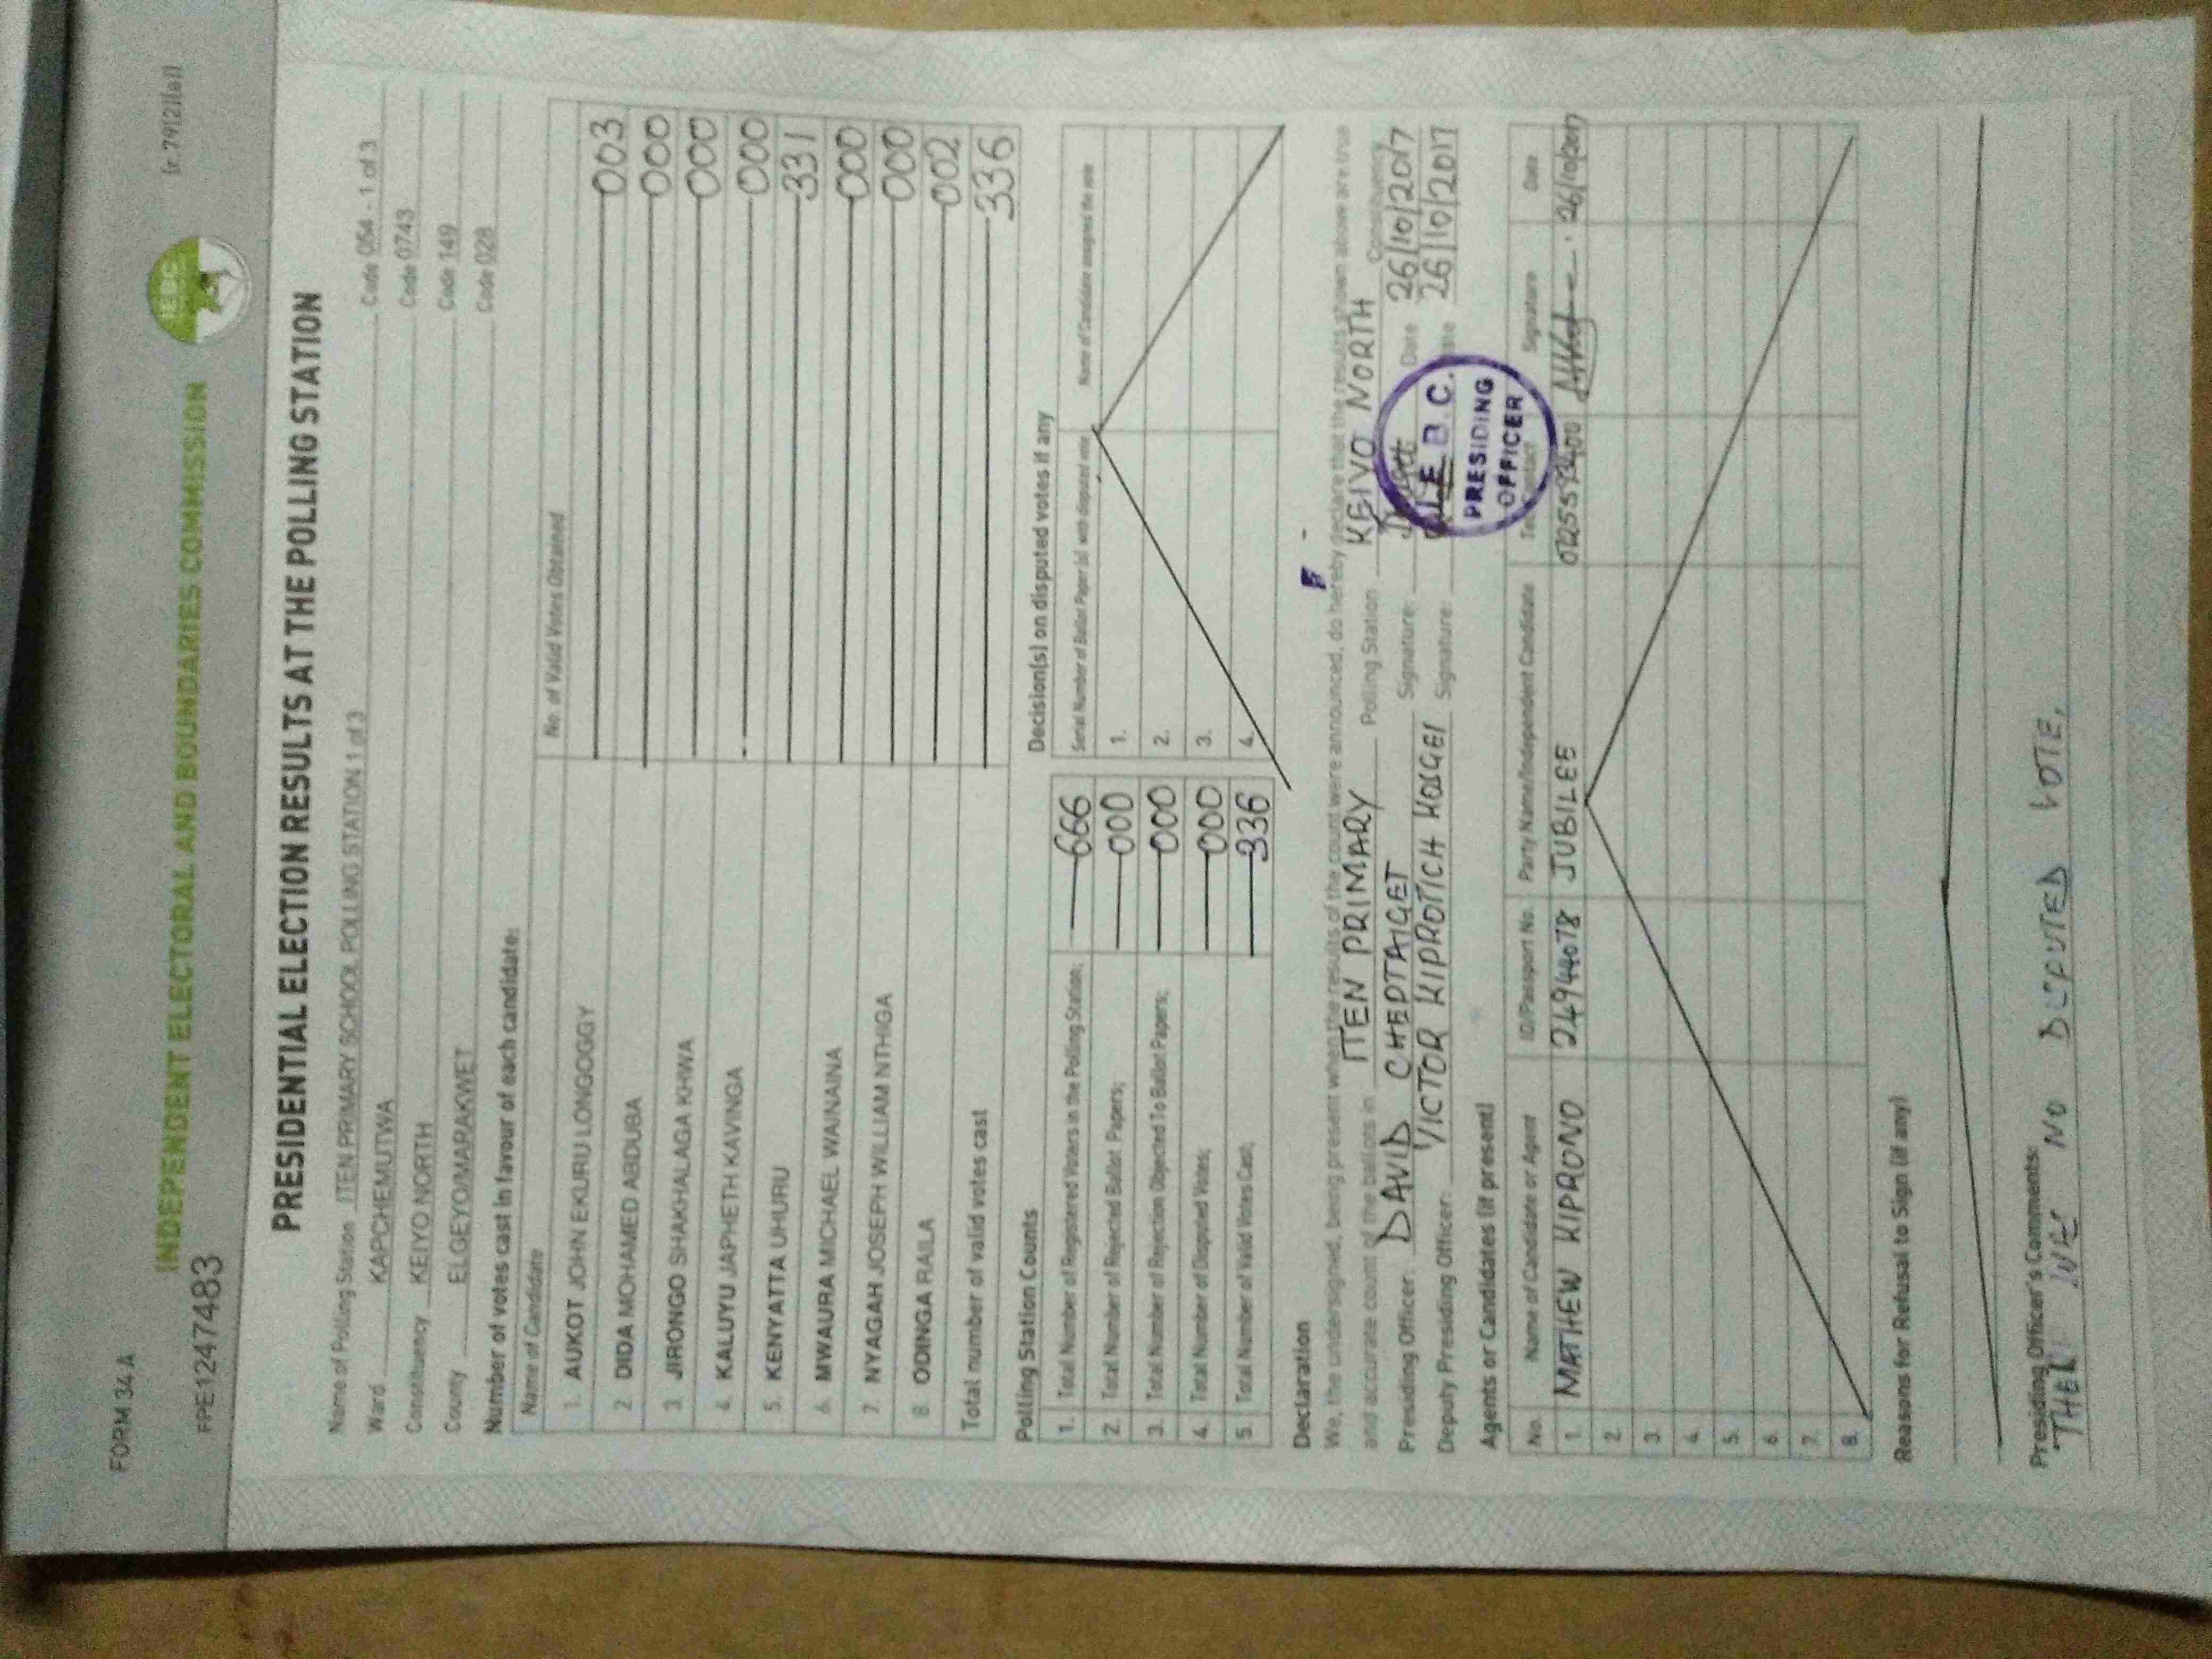 FORM 34 A
fr 79(2)(a)]
INDEPENDENT ELECTORAL AND BOUNDARIES COMMISSION
IEBC
FPE1247483
PRESIDENTIAL ELECTION RESULTS AT THE POLLING STATION
Name of Polling Station ITEN PRIMARY SCHOOL POLLING STATION 1 of 3 Code 054 - 1 of 3
Ward KAPCHEMUTWA Code 0743
Constituency KEIYO NORTH Code 149
County ELGEYO/MARAKWET Code 028
Number of votes cast in favour of each candidate:
Name of Candidate No. of Valid Votes Obtained
1. AUKOT JOHN EKURU LONGOGGY 003
2. DIDA MOHAMED ABDUBA 000
3. JIRONGO SHAKHALAGA KHWA 000
4. KALUYU JAPHETH KAVINGA 000
5. KENYATTA UHURU 331
6. MWAURA MICHAEL WAINAINA 000
7. NYAGAH JOSEPH WILLIAM NTHIGA 000
8. ODINGA RAILA 002
Total number of valid votes cast 336
Polling Station Counts
1. Total Number of Registered Voters in the Polling Station; 666
2. Total Number of Rejected Ballot Papers; 000
3. Total Number of Rejection Objected To Ballot Papers; 000
4. Total Number of Disputed Votes; 000
5. Total Number of Valid Votes Cast; 336
Decision(s) on disputed votes if any
Serial Number of Ballot Paper (s) with disputed vote Name of Candidate assigned the vote
1.
2.
3.
4.
Declaration
We, the undersigned, being present when the results of the count were announced, do hereby declare that the results shown above are true
and accurate count of the ballots in ITEN PRIMARY Polling Station KEIYO NORTH Constituency
Presiding Officer: DAVID CHEPTAIGET Signature: Date 26/10/2017
Deputy Presiding Officer: VICTOR KIPROTICH KOSGEI Signature: Date 26/10/2017
I.E.B.C.
PRESIDING
OFFICER
Agents or Candidates (if present)
No. Name of Candidate or Agent ID/Passport No. Party Name/Independent Candidate Tel. Contact Signature Date
1. MATHEW KIPRONO 24944078 JUBILEE 26/10/2017
2.
3.
4.
5.
6.
7.
8.
Reasons for Refusal to Sign (if any)
Presiding Officer's Comments:
NO DISPUTED VOTE.